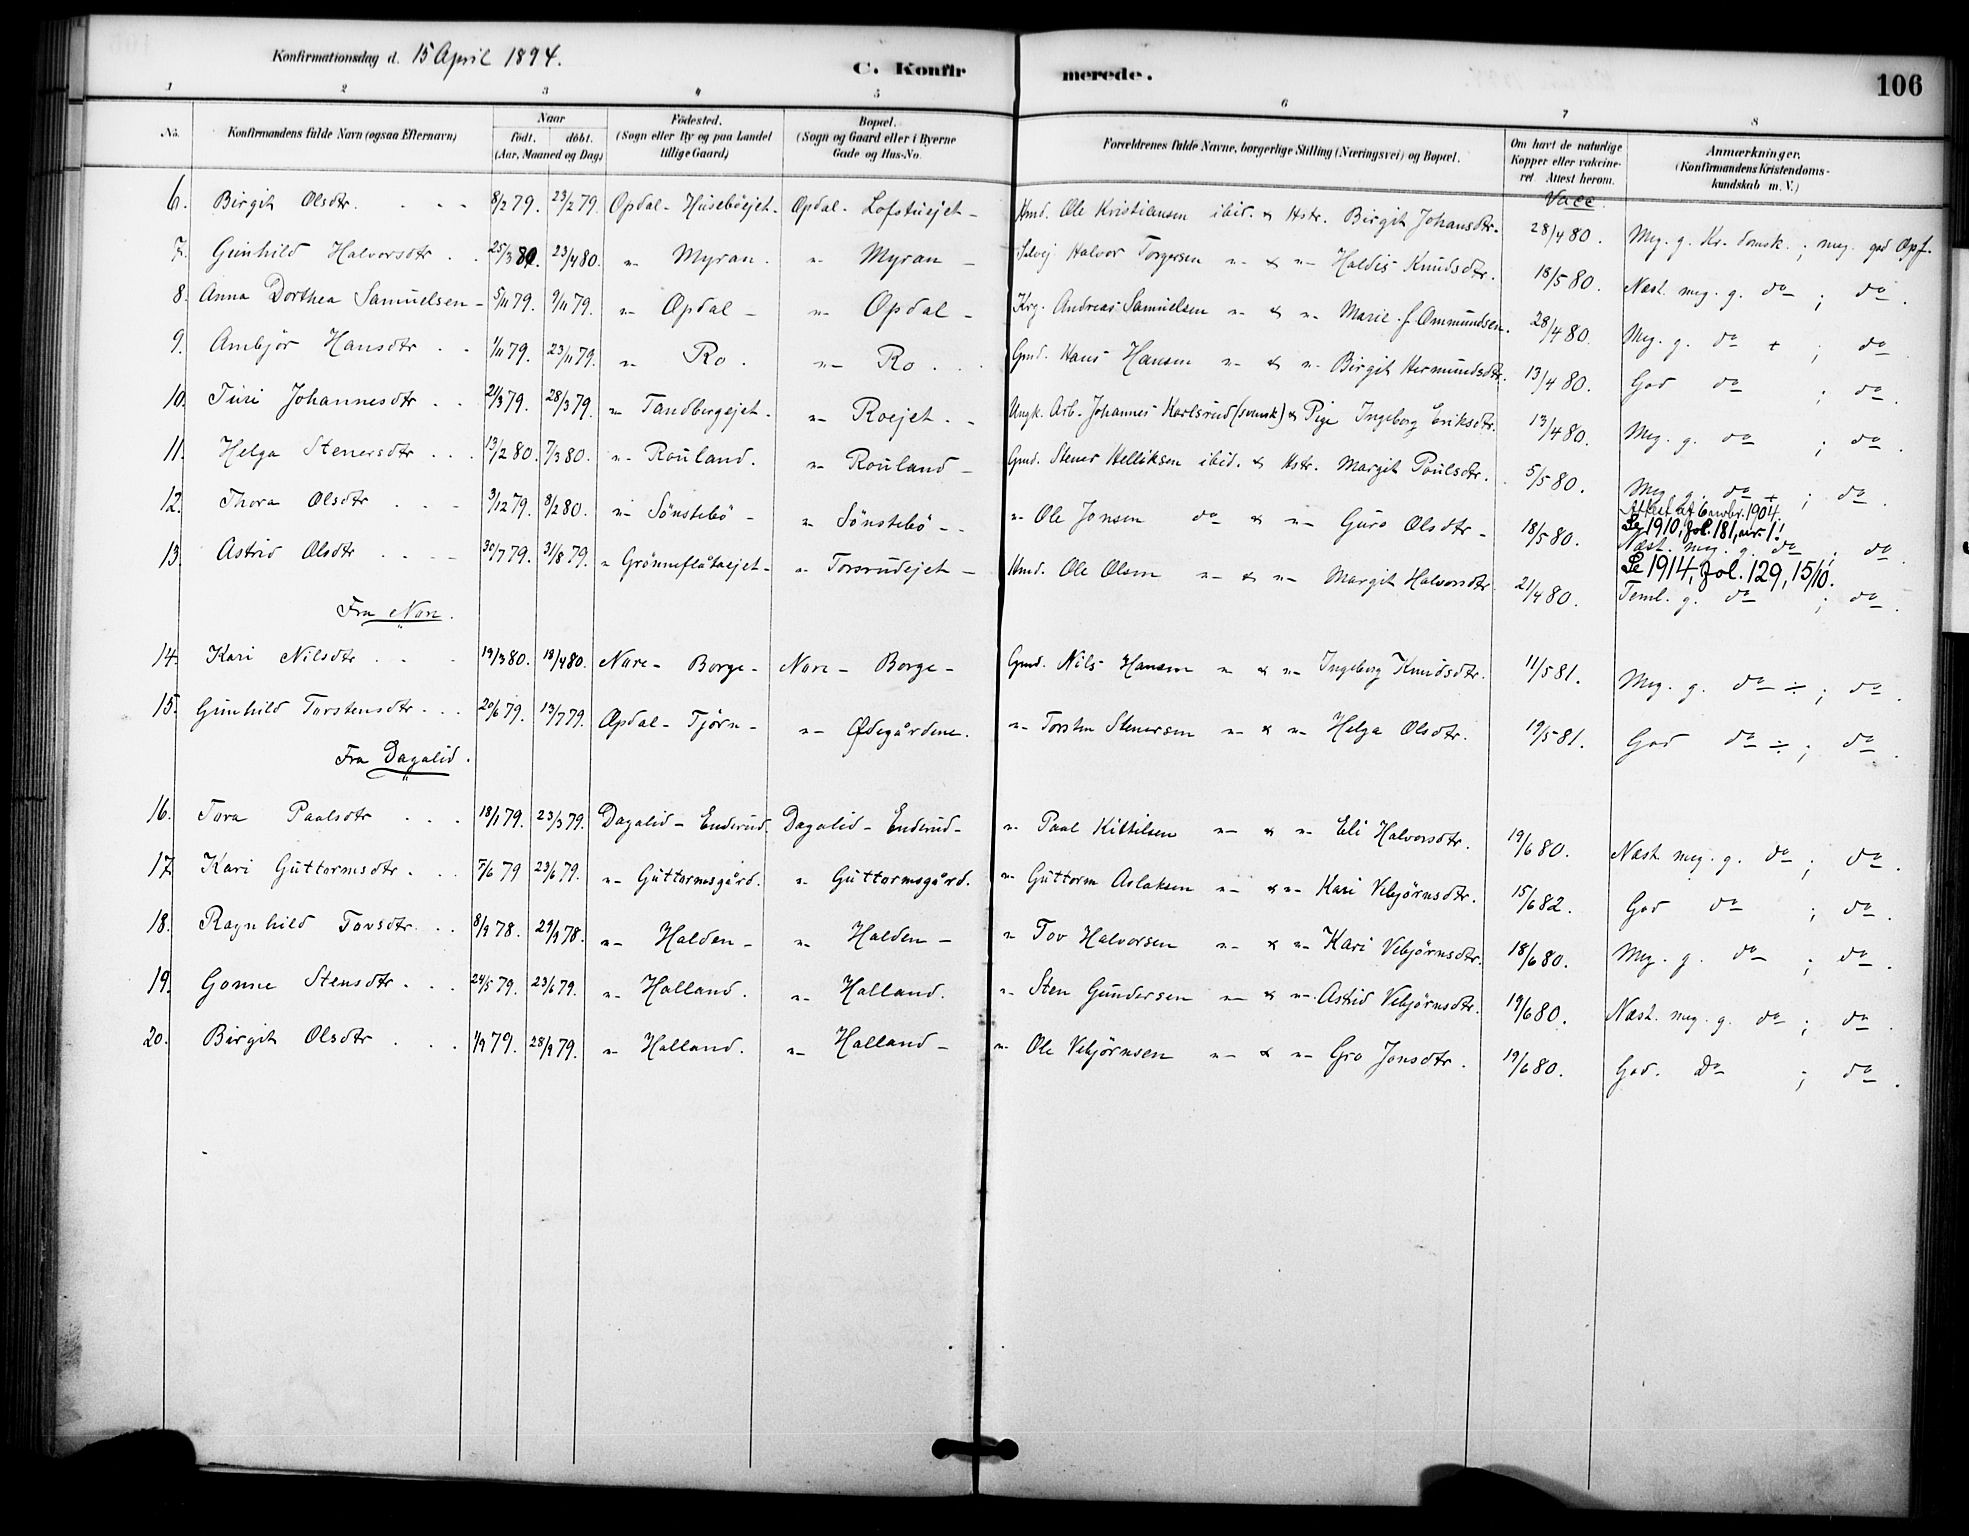 Konfirmationsdag d. 15 April 1894.
C. Konfirmerede.
106
1 2 3 4 5 6 7 8
No. Konfirmandens fulde Navn (ogsaa Efternavn) Naar født. døbt. (Aar, Maaned og Dag) Fødested. (Sogn eller By og paa Landet tillige Gaard) Bopæl. (Sogn og Gaard eller i Byerne Gade og Hus-No. Forældrenes fulde Navne, borgerlige Stilling (Næringsvei) og Bopæl. Om havt de naturlige Kopper eller vakcineret. Attest herom. Anmærkninger. (Konfirmandens Kristendomskundskab m. V.)
Vacc.
6. Birgit Olsdtr. 8/2 79. 23/2 79. Opdal - Huseböejet. Opdal - Lofstuejet - Hmd. Ole Kristiansen ibid. & Hstr. Birgit Johansdtr. 28/4 80. Meg. g. Kr.domsk.; meg. god Opf.
7. Gunhild Halvorsdtr 25/3 80. 23/4 80. " Myran. " Myran - Selvej Halvor Torgersen " & " Haldis Knudsdtr. 18/5 80. Næst. meg. g. do ; do.
8. Anna Dorthea Samuelsen - 5/11 79. 9/11 79. " Opdal - " Opdal - Krg. Andreas Samuelsen " & " Marie f. Ommundsen. 28/4 80. Meg. g. do + ; do.
9. Ambjör Hansdtr 1/11 79. 23/11 79. " Ro. " Ro. Gmd. Hans Hansen " & " Birgit Hermundsdtr. 13/4 80. God do ; do.
10. Turi Johannesdtr 2/3 79. 28/3 79. " Tandbergejet. " Roejet. Ungk. Arb. Johannes Karlsrud (svensk) & Pige Ingeborg Eriksdtr. 13/4 80. Meg. g. do ; do.
11. Helga Stenersdtr 13/2 80. 7/3 80. " Rouland. " Rouland - Gmd. Stener Helliksen ibid. & Hstr. Margit Poulsdtr. 5/5 80. Meg. g. do + ; do.
Attest 6 novbr. 1904
12. Thora Olsdtr 3/12 79. 8/2 80. " Sönstebö - " Sönstebö - " Ole Jonsen do & " Guro Olsdtr - 18/5 80. Se 1910, fol. 181, nr. 1!
Næst. meg. g. do ; do.
13. Astrid Olsdtr 30/7 79. 31/8 79. " Grönneflåtaejet - " Torsrudejet - Hmd. Ole Olsen " & " Margit Halvorsdtr 21/4 80. Se 1914, fol. 129, 15/10!
Teml. g. do ; do.
Fra Nore.
14. Kari Nilsdtr 19/3 80. 18/4 80. Nore - Borge - Nore - Borge - Gmd. Nils Hansen " & " Ingeborg Knudsdtr. 11/5 81. Meg. g. do ÷ ; do.
15. Gunhild Torstensdtr 20/6 79. 13/7 79. Opdal - Tjörn - " Ødegårdene. " Torsten Stenersen " & " Helga Olsdtr. 19/5 81. God do ÷ ; do.
Fra Dagalid.
16. Tora Paalsdtr 18/1 79. 23/3 79. Dagalid - Enderud. Dagalid - Enderud - " Paal Kittilsen " & " Eli Halvorsdtr. 19/6 80. Næst. meg. g. do ; do.
17. Kari Guttormsdtr 5/6 79 23/6 79. " Guttormsgård. " Guttormsgård. " Guttorm Aslaksen " & " Kari Vebjörnsdtr. 15/6 82. God do ; do.
18. Ragnhild Tovsdtr. 8/9 78. 29/9 78. " Halden - " Halden - " Tov Halvorsen " & " Kari Vebjörnsdtr. 18/6 80. Meg. g. do ; do.
19. Gonne Stensdtr 24/5 79. 23/6 79. " Halland. " Halland. " Sten Gundersen " & " Astrid Vebjörnsdtr. 19/6 80. Næst. meg. g. do ; do.
20. Birgit Olsdtr 1/9 79. 28/9 79. " Halland. " Halland - " Ole Vebjörnsen " & " Gro Jonsdtr. 19/6 80. God. Do ; do.